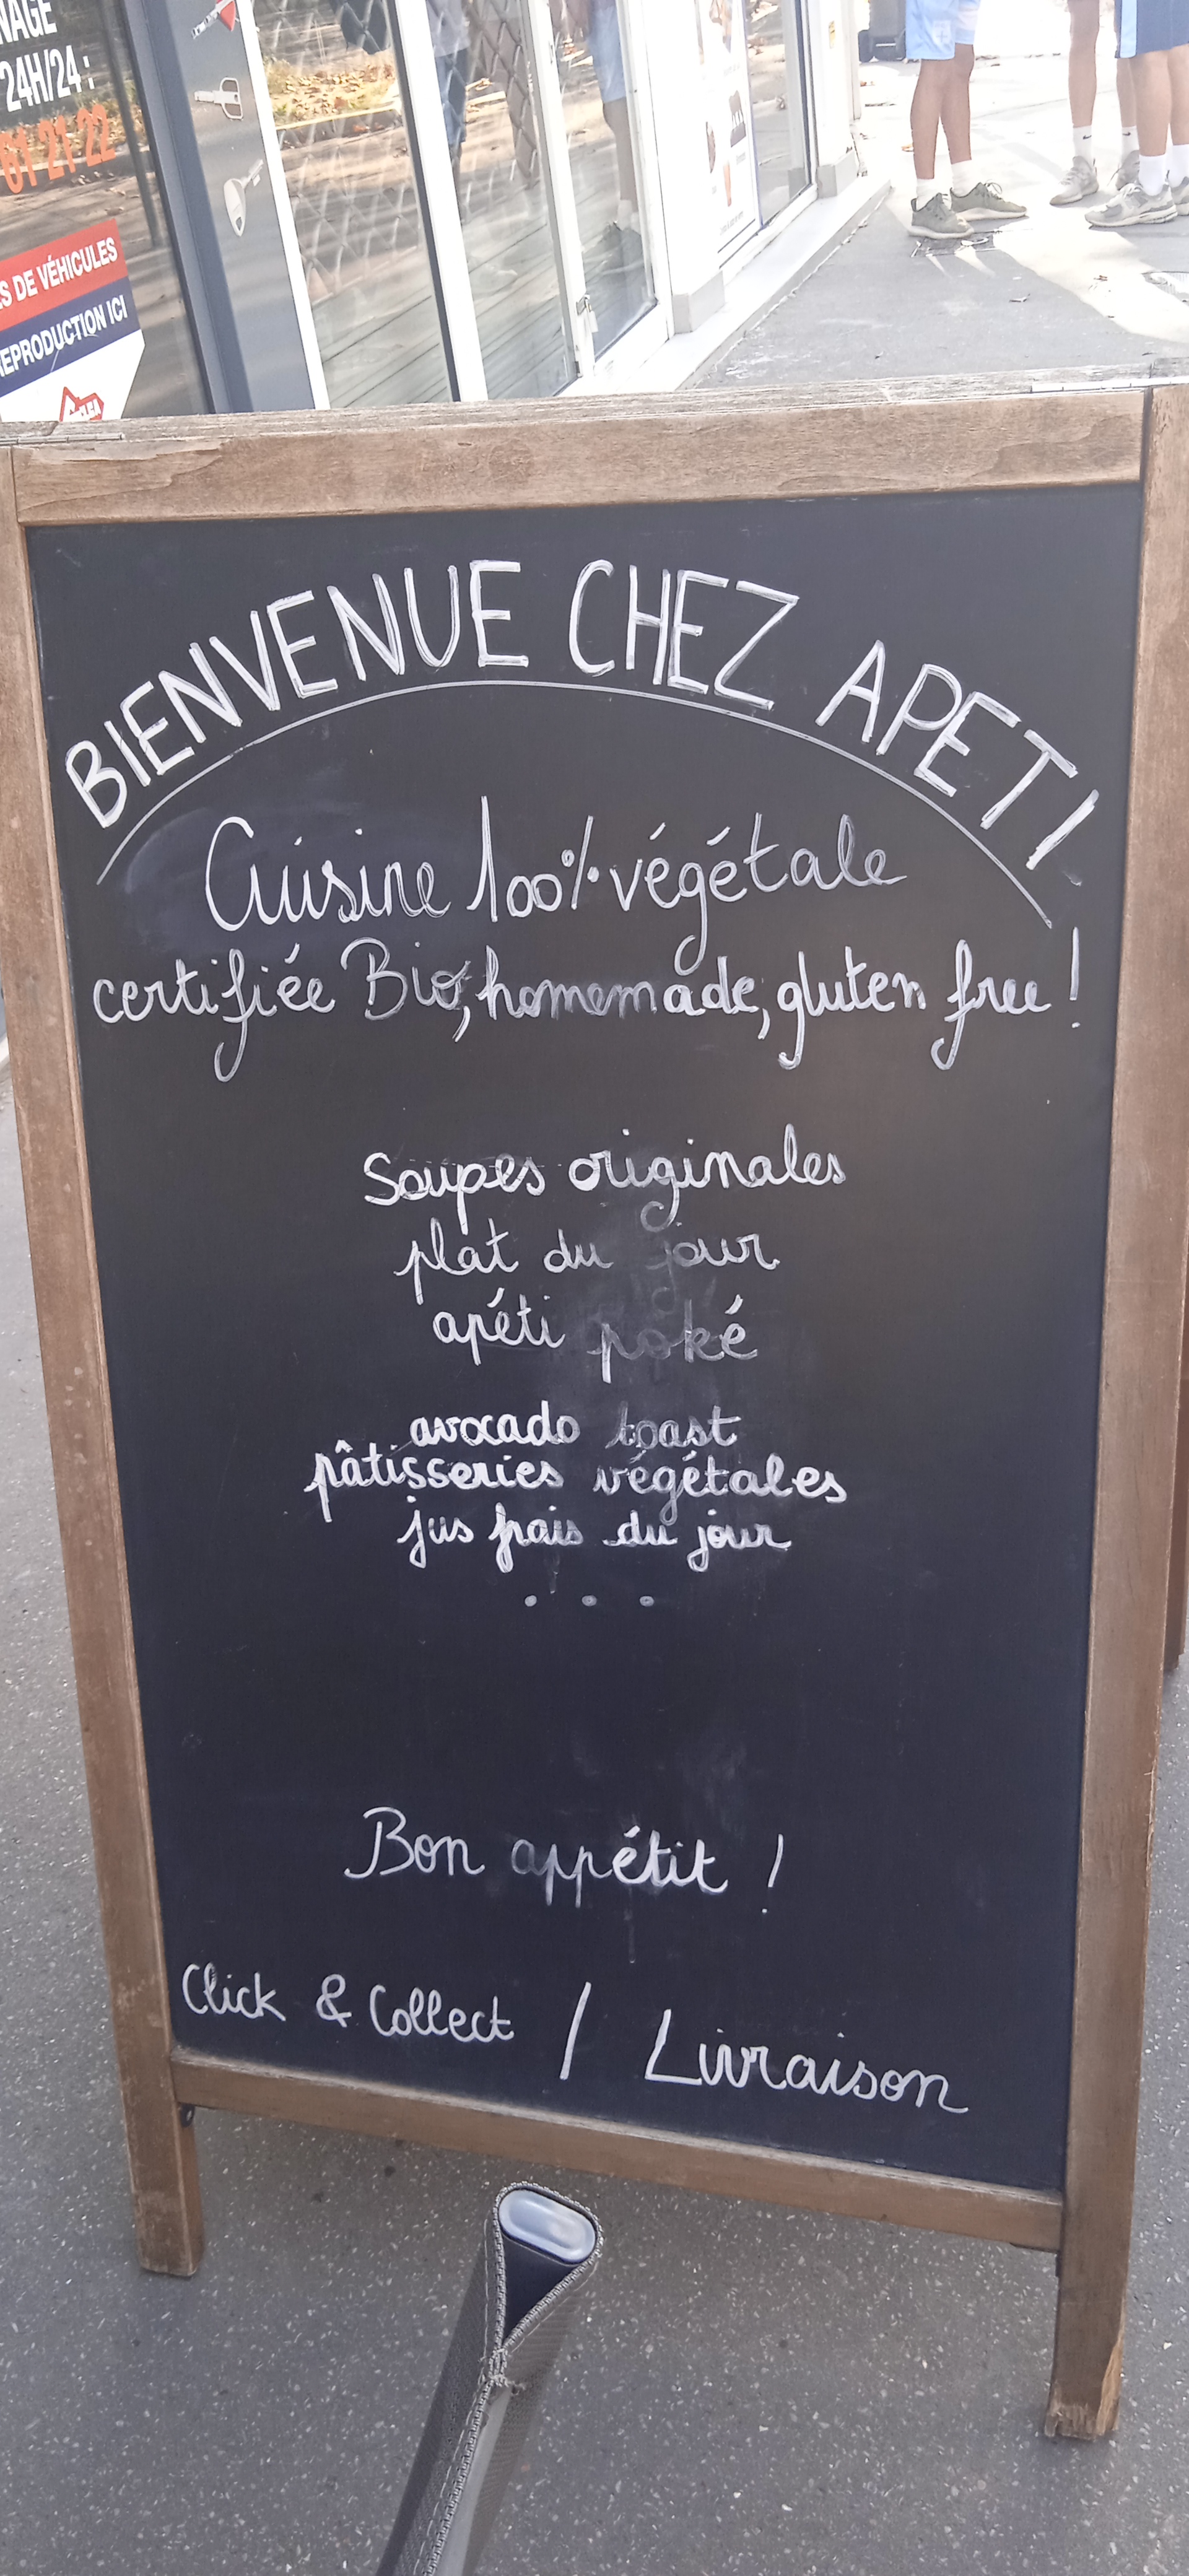 NAGE
24H/24 :
61 21 22
S DE VÉHICULES
REPRODUCTION ICI
BIENVENUE CHEZ APETI
Cuisine 100% végétale
certifiée Bio, homemade, gluten free !
Soupes originales
plat du jour
apéti poké
avocado toast
pâtisseries végétales
jus frais du jour
. . .
Bon appétit !
Click & Collect / Livraison